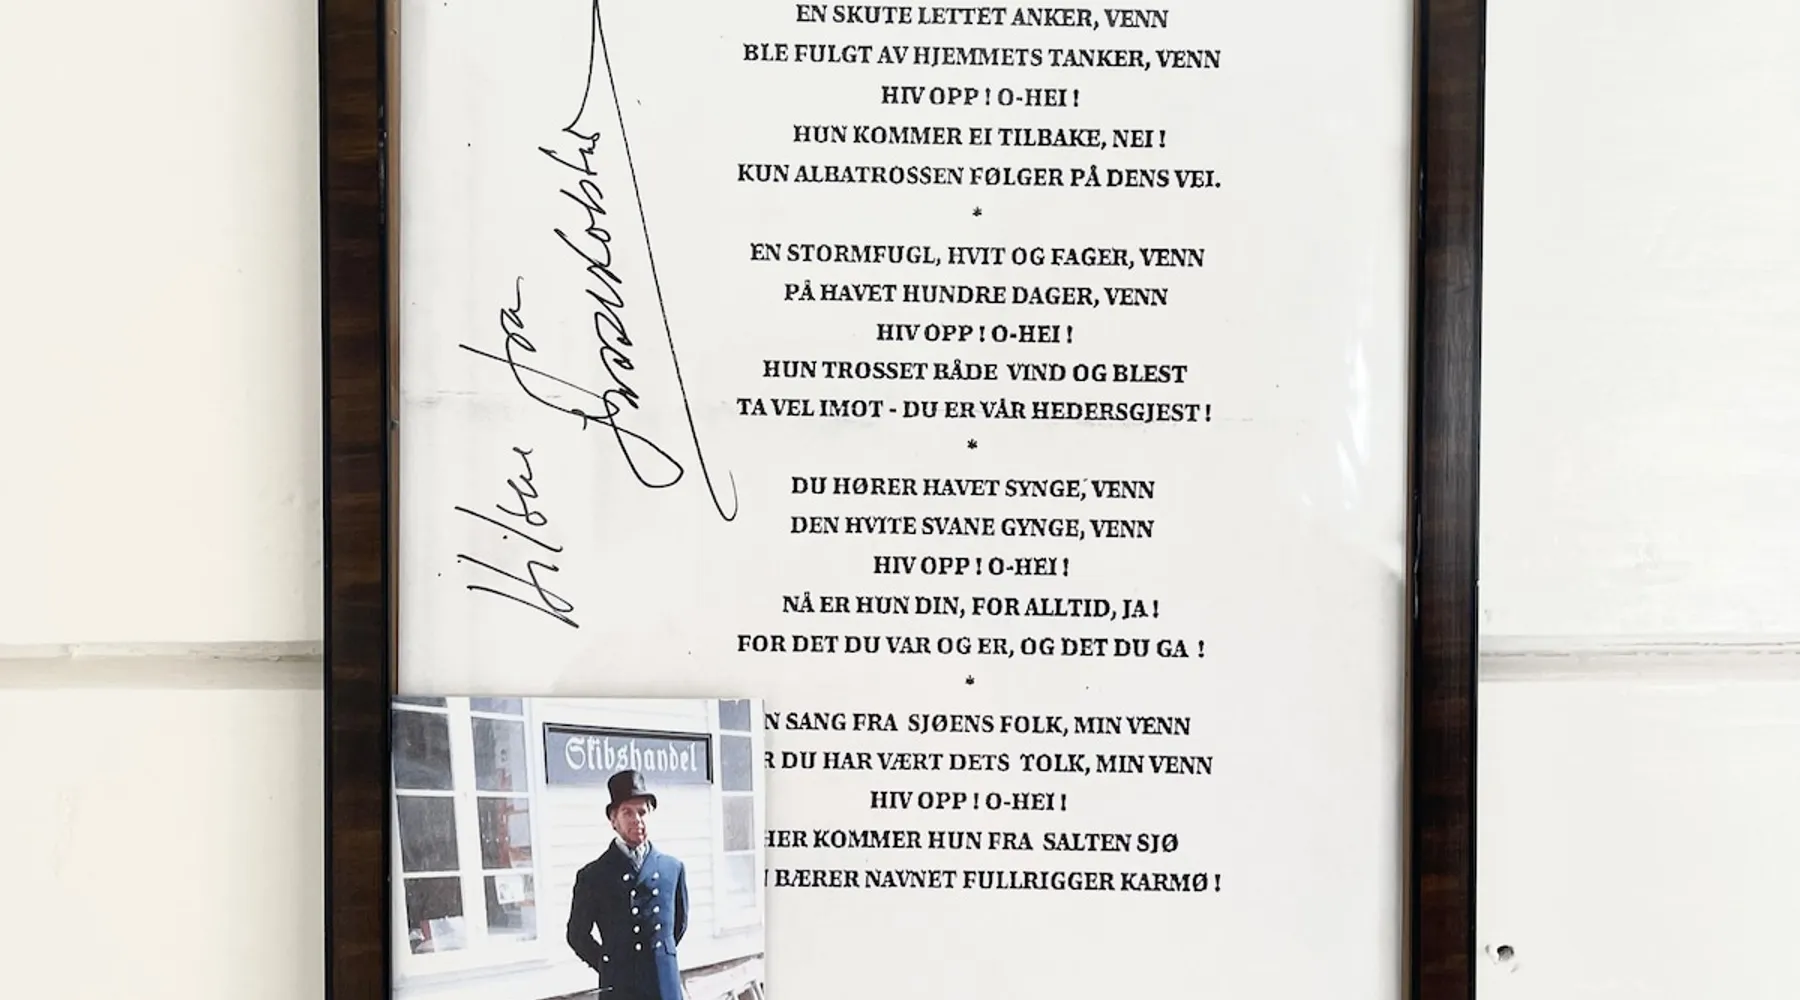 EN SKUTE LETTET ANKER, VENN
BLE FULGT AV HJEMMETS TANKER, VENN
HIV OPP ! O-HEI !
HUN KOMMER EI TILBAKE, NEI !
KUN ALBATROSSEN FØLGER PÅ DENS VEI.
*
EN STORMFUGL, HVIT OG FAGER, VENN
PÅ HAVET HUNDRE DAGER, VENN
HIV OPP ! O-HEI !
HUN TROSSET BÅDE VIND OG BLEST
TA VEL IMOT - DU ER VÅR HEDERSGJEST !
*
DU HØRER HAVET SYNGE, VENN
DEN HVITE SVANE GYNGE, VENN
HIV OPP ! O-HEI !
NÅ ER HUN DIN, FOR ALLTID, JA !
FOR DET DU VAR OG ER, OG DET DU GA !
*
N SANG FRA SJØENS FOLK, MIN VENN
R DU HAR VÆRT DETS TOLK, MIN VENN
HIV OPP ! O-HEI !
HER KOMMER HUN FRA SALTEN SJØ
BÆRER NAVNET FULLRIGGER KARMØ !
Hilsen fra
Skibshandel